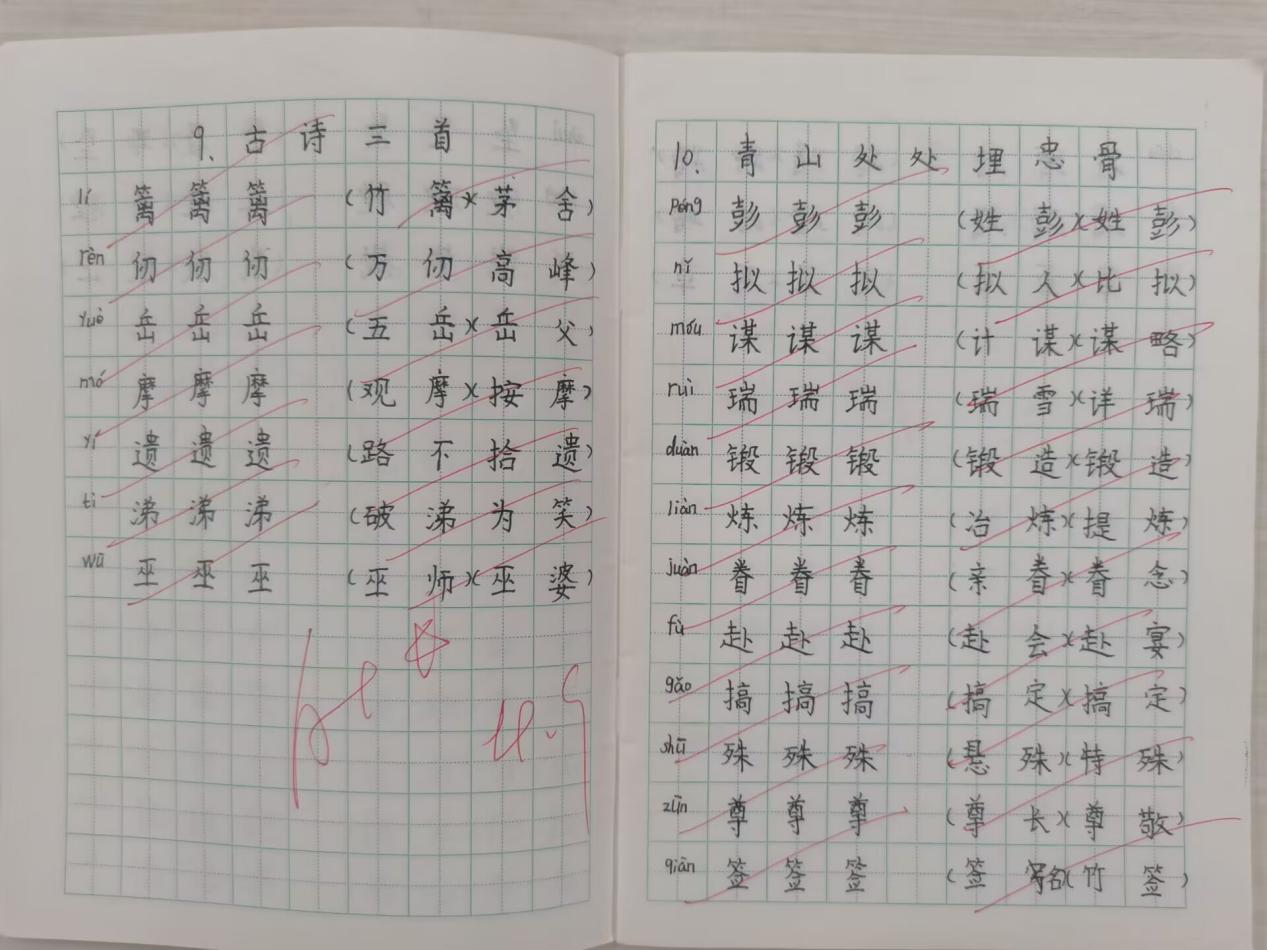 9. 古诗三首
lí 篱篱篱 (竹篱)(茅舍)
rèn 仞仞仞 (万仞高峰)
yuè 岳岳岳 (五岳)(岳父)
mó 摩摩摩 (观摩)(按摩)
yí 遗遗遗 (路不拾遗)
tì 涕涕涕 (破涕为笑)
wū 巫巫巫 (巫师)(巫婆)
10. 青山处处埋忠骨
péng 彭彭彭 (姓彭)(姓彭)
nǐ 拟拟拟 (拟人)(比拟)
móu 谋谋谋 (计谋)(谋略)
ruì 瑞瑞瑞 (瑞雪)(详瑞)
duàn 锻锻锻 (锻造)(锻造)
liàn 炼炼炼 (冶炼)(提炼)
juàn 眷眷眷 (亲眷)(眷念)
fù 赴赴赴 (赴会)(赴宴)
gǎo 搞搞搞 (搞定)(搞定)
shū 殊殊殊 (悬殊)(特殊)
zūn 尊尊尊 (尊长)(尊敬)
qiān 签签签 (签名)(竹签)